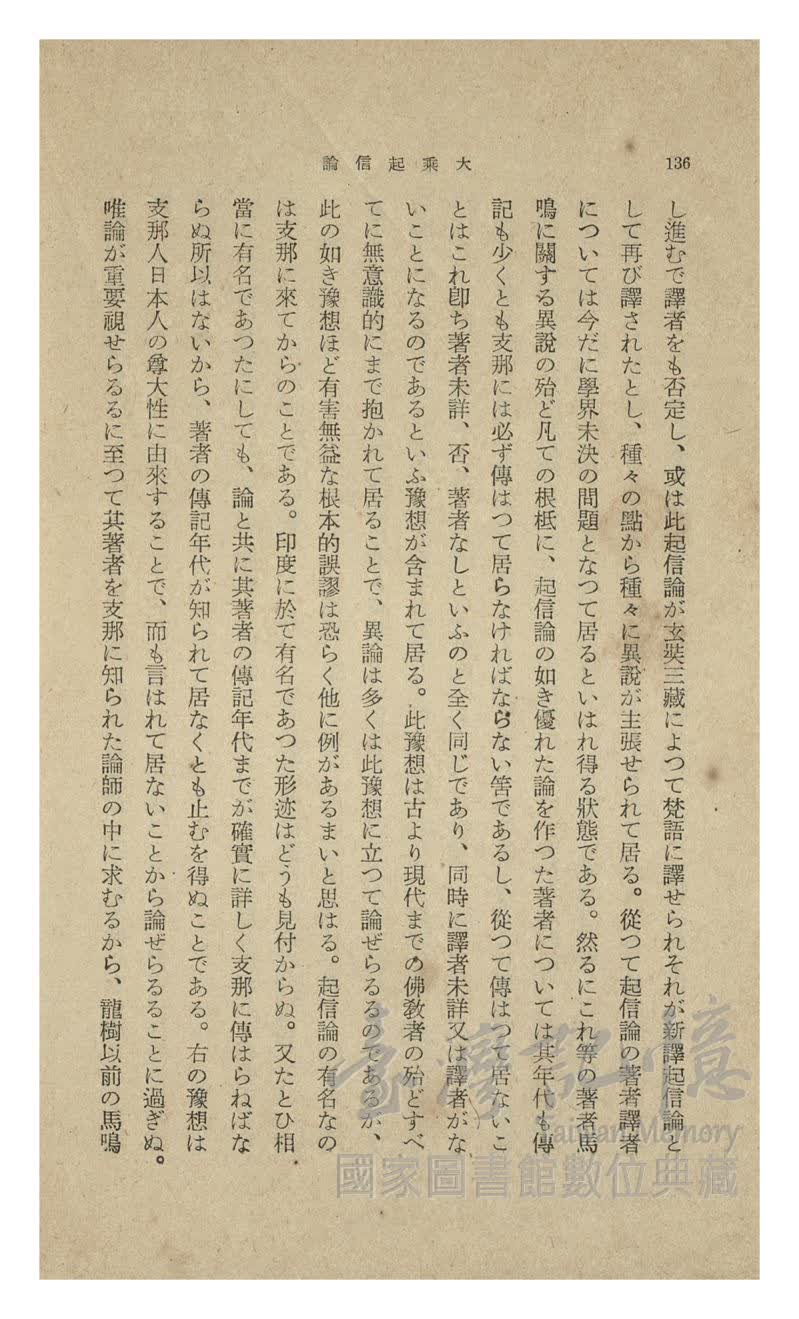 136
大乘起信論
し進むで譯者をも否定し、或は此起信論が玄奘三藏によつて梵語に譯せられそれが新譯起信論と
して再び譯されたとし、種々の點から種々に異說が主張せられて居る。從つて起信論の著者譯者
については今だに學界未決の問題となつて居るといはれ得る狀態である。然るにこれ等の著者馬
鳴に關する異說の殆ど凡ての根柢に、起信論の如き優れた論を作つた著者については其年代も傳
記も少くとも支那には必ず傳はつて居らなければならない筈であるし、從つて傳はつて居ないこ
とはこれ卽ち著者未詳、否、著者なしといふのと全く同じであり、同時に譯者未詳又は譯者がな
いことになるのであるといふ豫想が含まれて居る。此豫想は古より現代までの佛敎者の殆どすべ
てに無意識的にまで抱かれて居ることで、異論は多くは此豫想に立つて論ぜらるるのであるが、
此の如き豫想ほど有害無益な根本的誤謬は恐らく他に例があるまいと思はる。起信論の有名なの
は支那に來てからのことである。印度に於て有名であつた形迹はどうも見付からぬ。又たとひ相
當に有名であつたにしても、論と共に其著者の傳記年代までが確實に詳しく支那に傳はらねばな
らぬ所以はないから、著者の傳記年代が知られて居なくとも止むを得ぬことである。右の豫想は
支那人日本人の尊大性に由來することで、而も言はれて居ないことから論ぜらるることに過ぎぬ。
唯論が重要視せらるるに至つて其著者を支那に知られた論師の中に求むるから、龍樹以前の馬鳴
臺灣記憶
Taiwan Memory
國家圖書館數位典藏